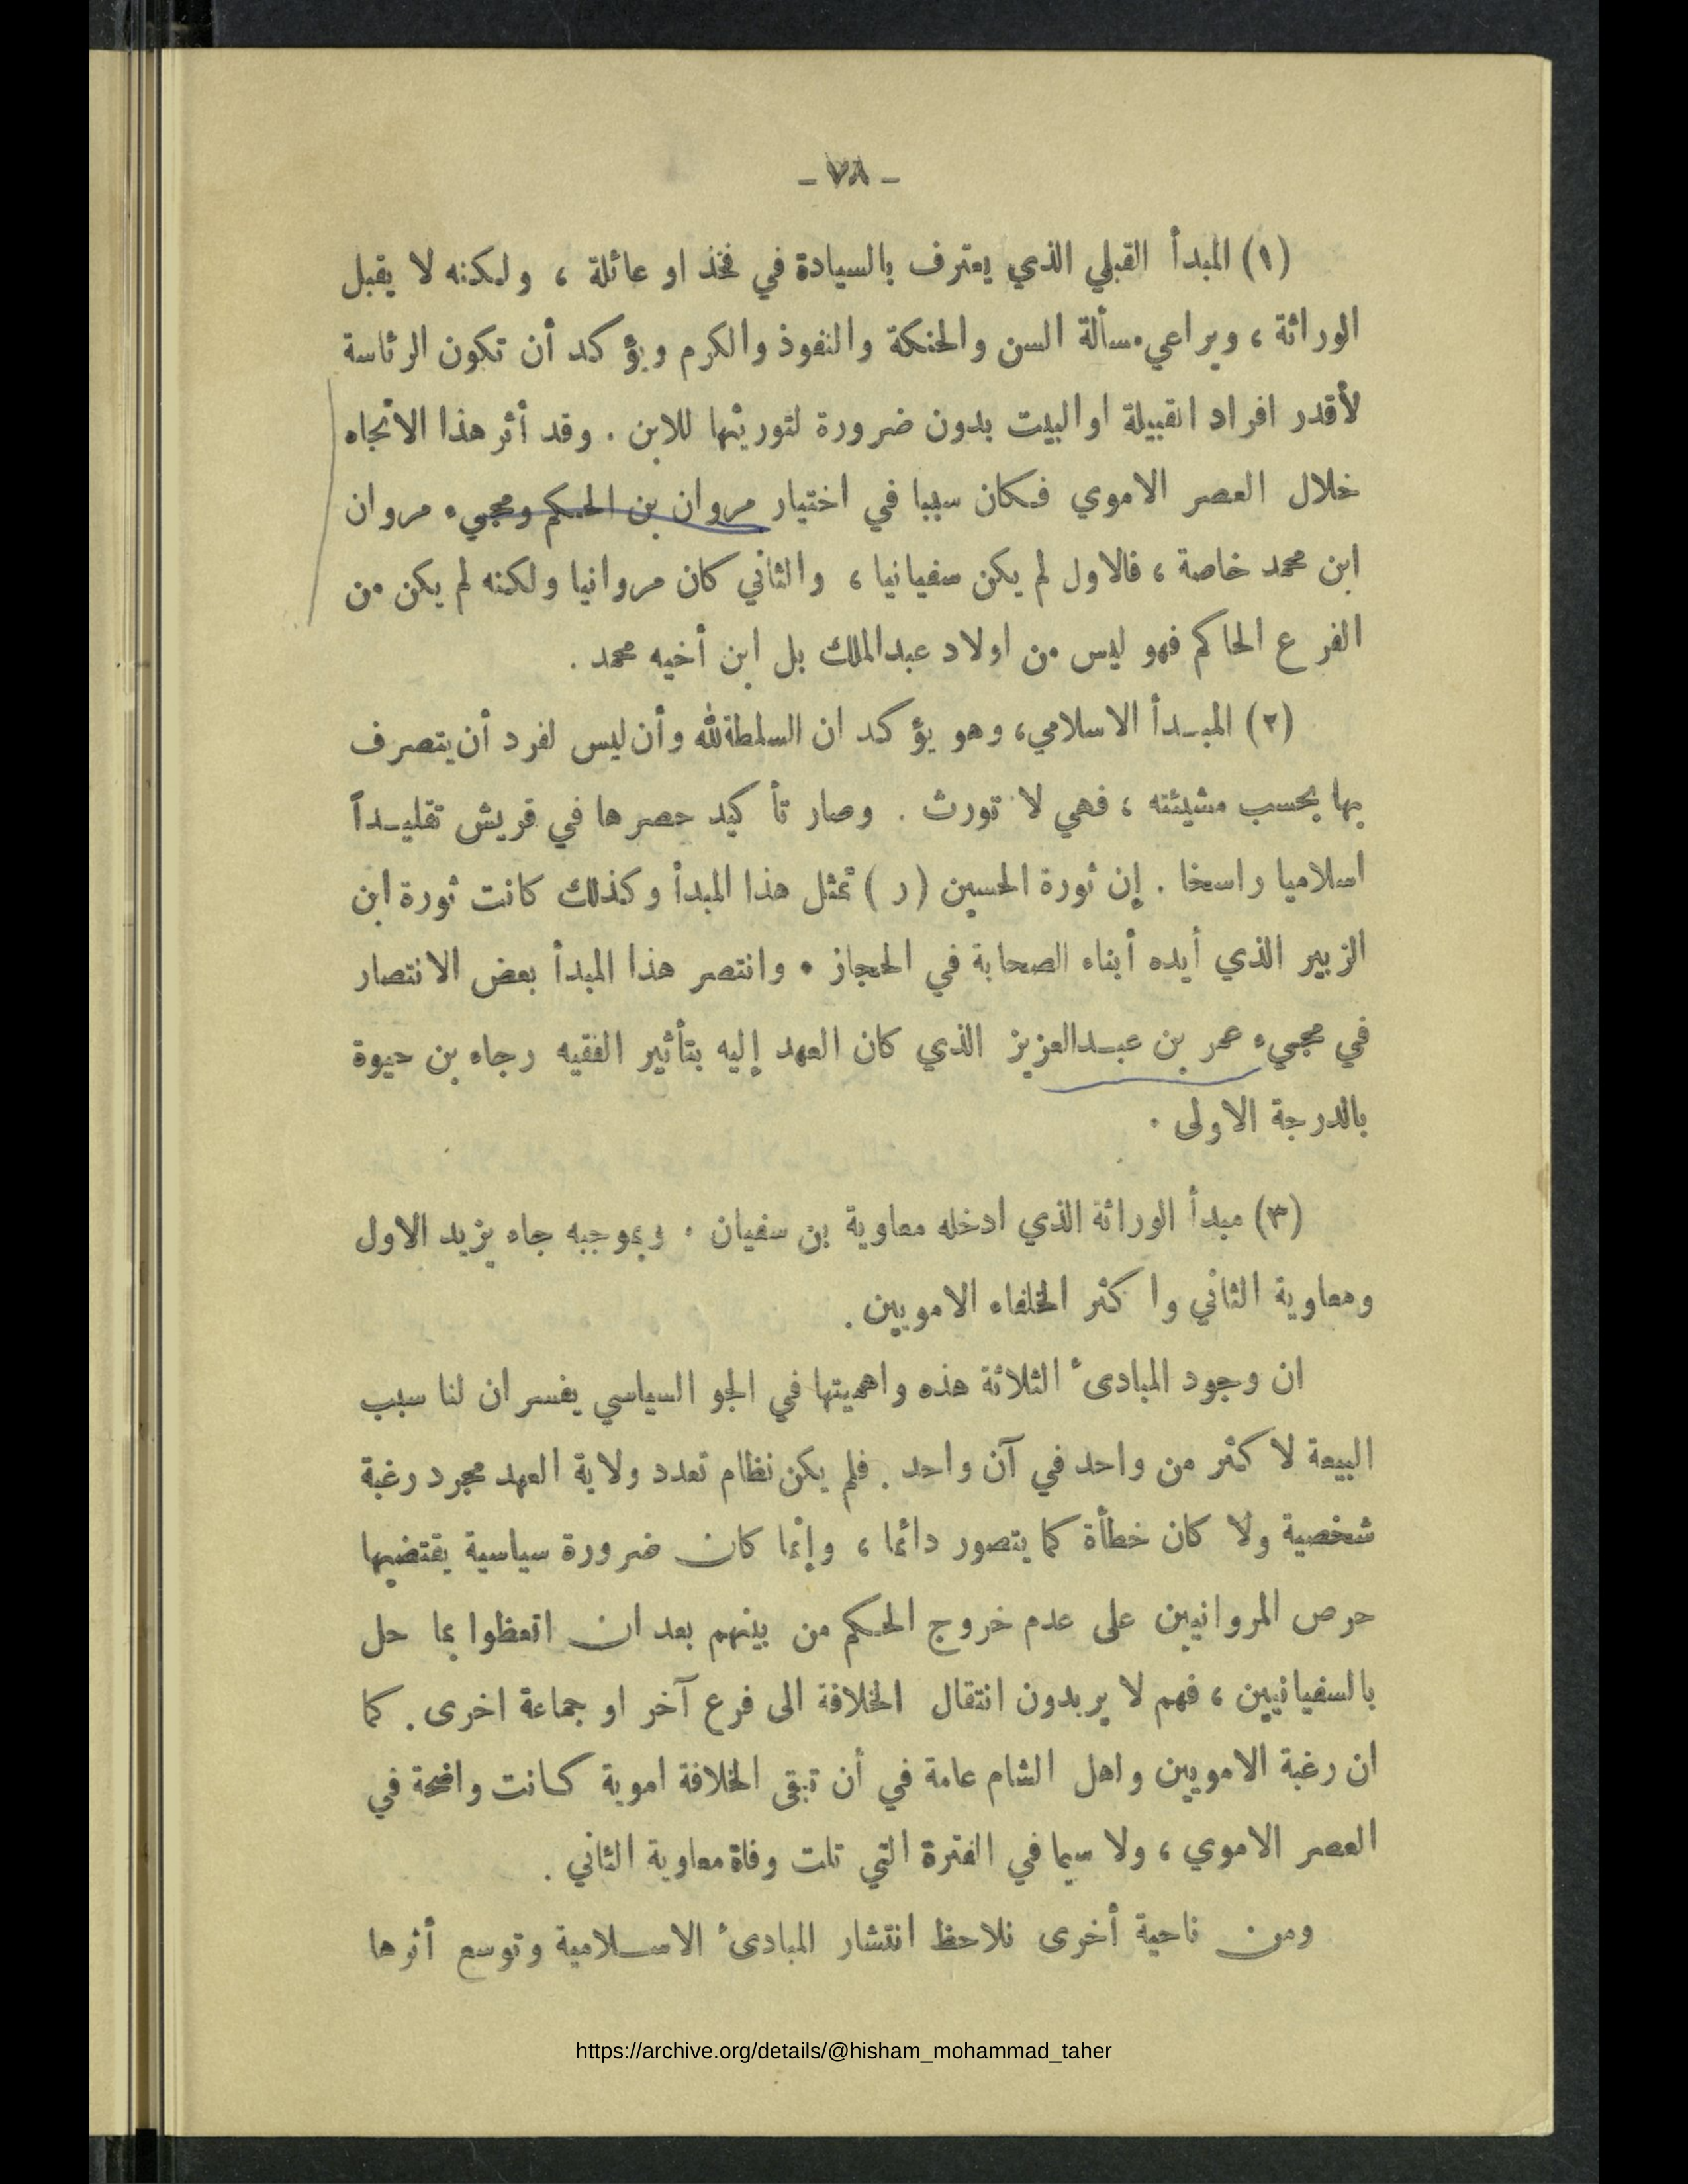 - ٧٨ -
(١) المبدأ القبلي الذي يعترف بالسيادة في فخذ او عائلة ، ولكنه لا يقبل
الوراثة ، ويراعي مسألة السن والحنكة والنفوذ والكرم ويؤكد أن تكون الرئاسة
لأقدر افراد القبيلة او البيت بدون ضرورة لتوريثها للابن . وقد أثر هذا الاتجاه
خلال العصر الاموي فكان سببا في اختيار مروان بن الحكم ومجيء مروان
ابن محمد خاصة ، فالاول لم يكن سفيانيا ، والثاني كان مروانيا ولكنه لم يكن من
الفرع الحاكم فهو ليس من اولاد عبدالملك بل ابن أخيه محمد .
(٢) المبـدأ الاسلامي، وهو يؤكد ان السلطة لله وأن ليس لفرد أن يتصرف
بها بحسب مشيئته ، فهي لا تورث . وصار تأكيد حصرها في قريش تقليـداً
اسلاميا راسخا . إن ثورة الحسين ( ر ) تمثل هذا المبدأ وكذلك كانت ثورة ابن
الزبير الذي أيده أبناء الصحابة في الحجاز . وانتصر هذا المبدأ بعض الانتصار
في مجيء عمر بن عبـدالعزيز الذي كان العهد إليه بتأثير الفقيه رجاء بن حيوة
بالدرجة الاولى .
(٣) مبدأ الوراثة الذي ادخله معاوية بن سفيان . وبموجبه جاء يزيد الاول
ومعاوية الثاني واكثر الخلفاء الامويين .
ان وجود المبادىء الثلاثة هذه واهميتها في الجو السياسي يفسران لنا سبب
البيعة لاكثر من واحد في آن واحد . فلم يكن نظام تعدد ولاية العهد مجرد رغبة
شخصية ولا كان خطأة كما يتصور دائما ، وإنما كان ضرورة سياسية يقتضيها
حرص المروانيين على عدم خروج الحكم من بينهم بعد ان اتعظوا بما حل
بالسفيانيين ، فهم لا يريدون انتقال الخلافة الى فرع آخر او جماعة اخرى . كما
ان رغبة الامويين واهل الشام عامة في أن تبقى الخلافة اموية كانت واضحة في
العصر الاموي ، ولا سيما في الفترة التي تلت وفاة معاوية الثاني .
ومن ناحية أخرى نلاحظ انتشار المبادىء الاسـلامية وتوسع أثرها
https://archive.org/details/@hisham_mohammad_taher